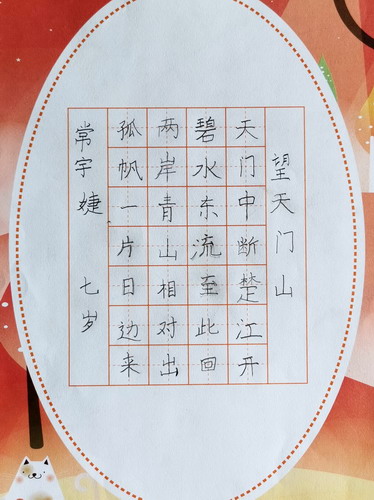 望天门山
天门中断楚江开
碧水东流至此回
两岸青山相对出
孤帆一片日边来
常宇婕 七岁